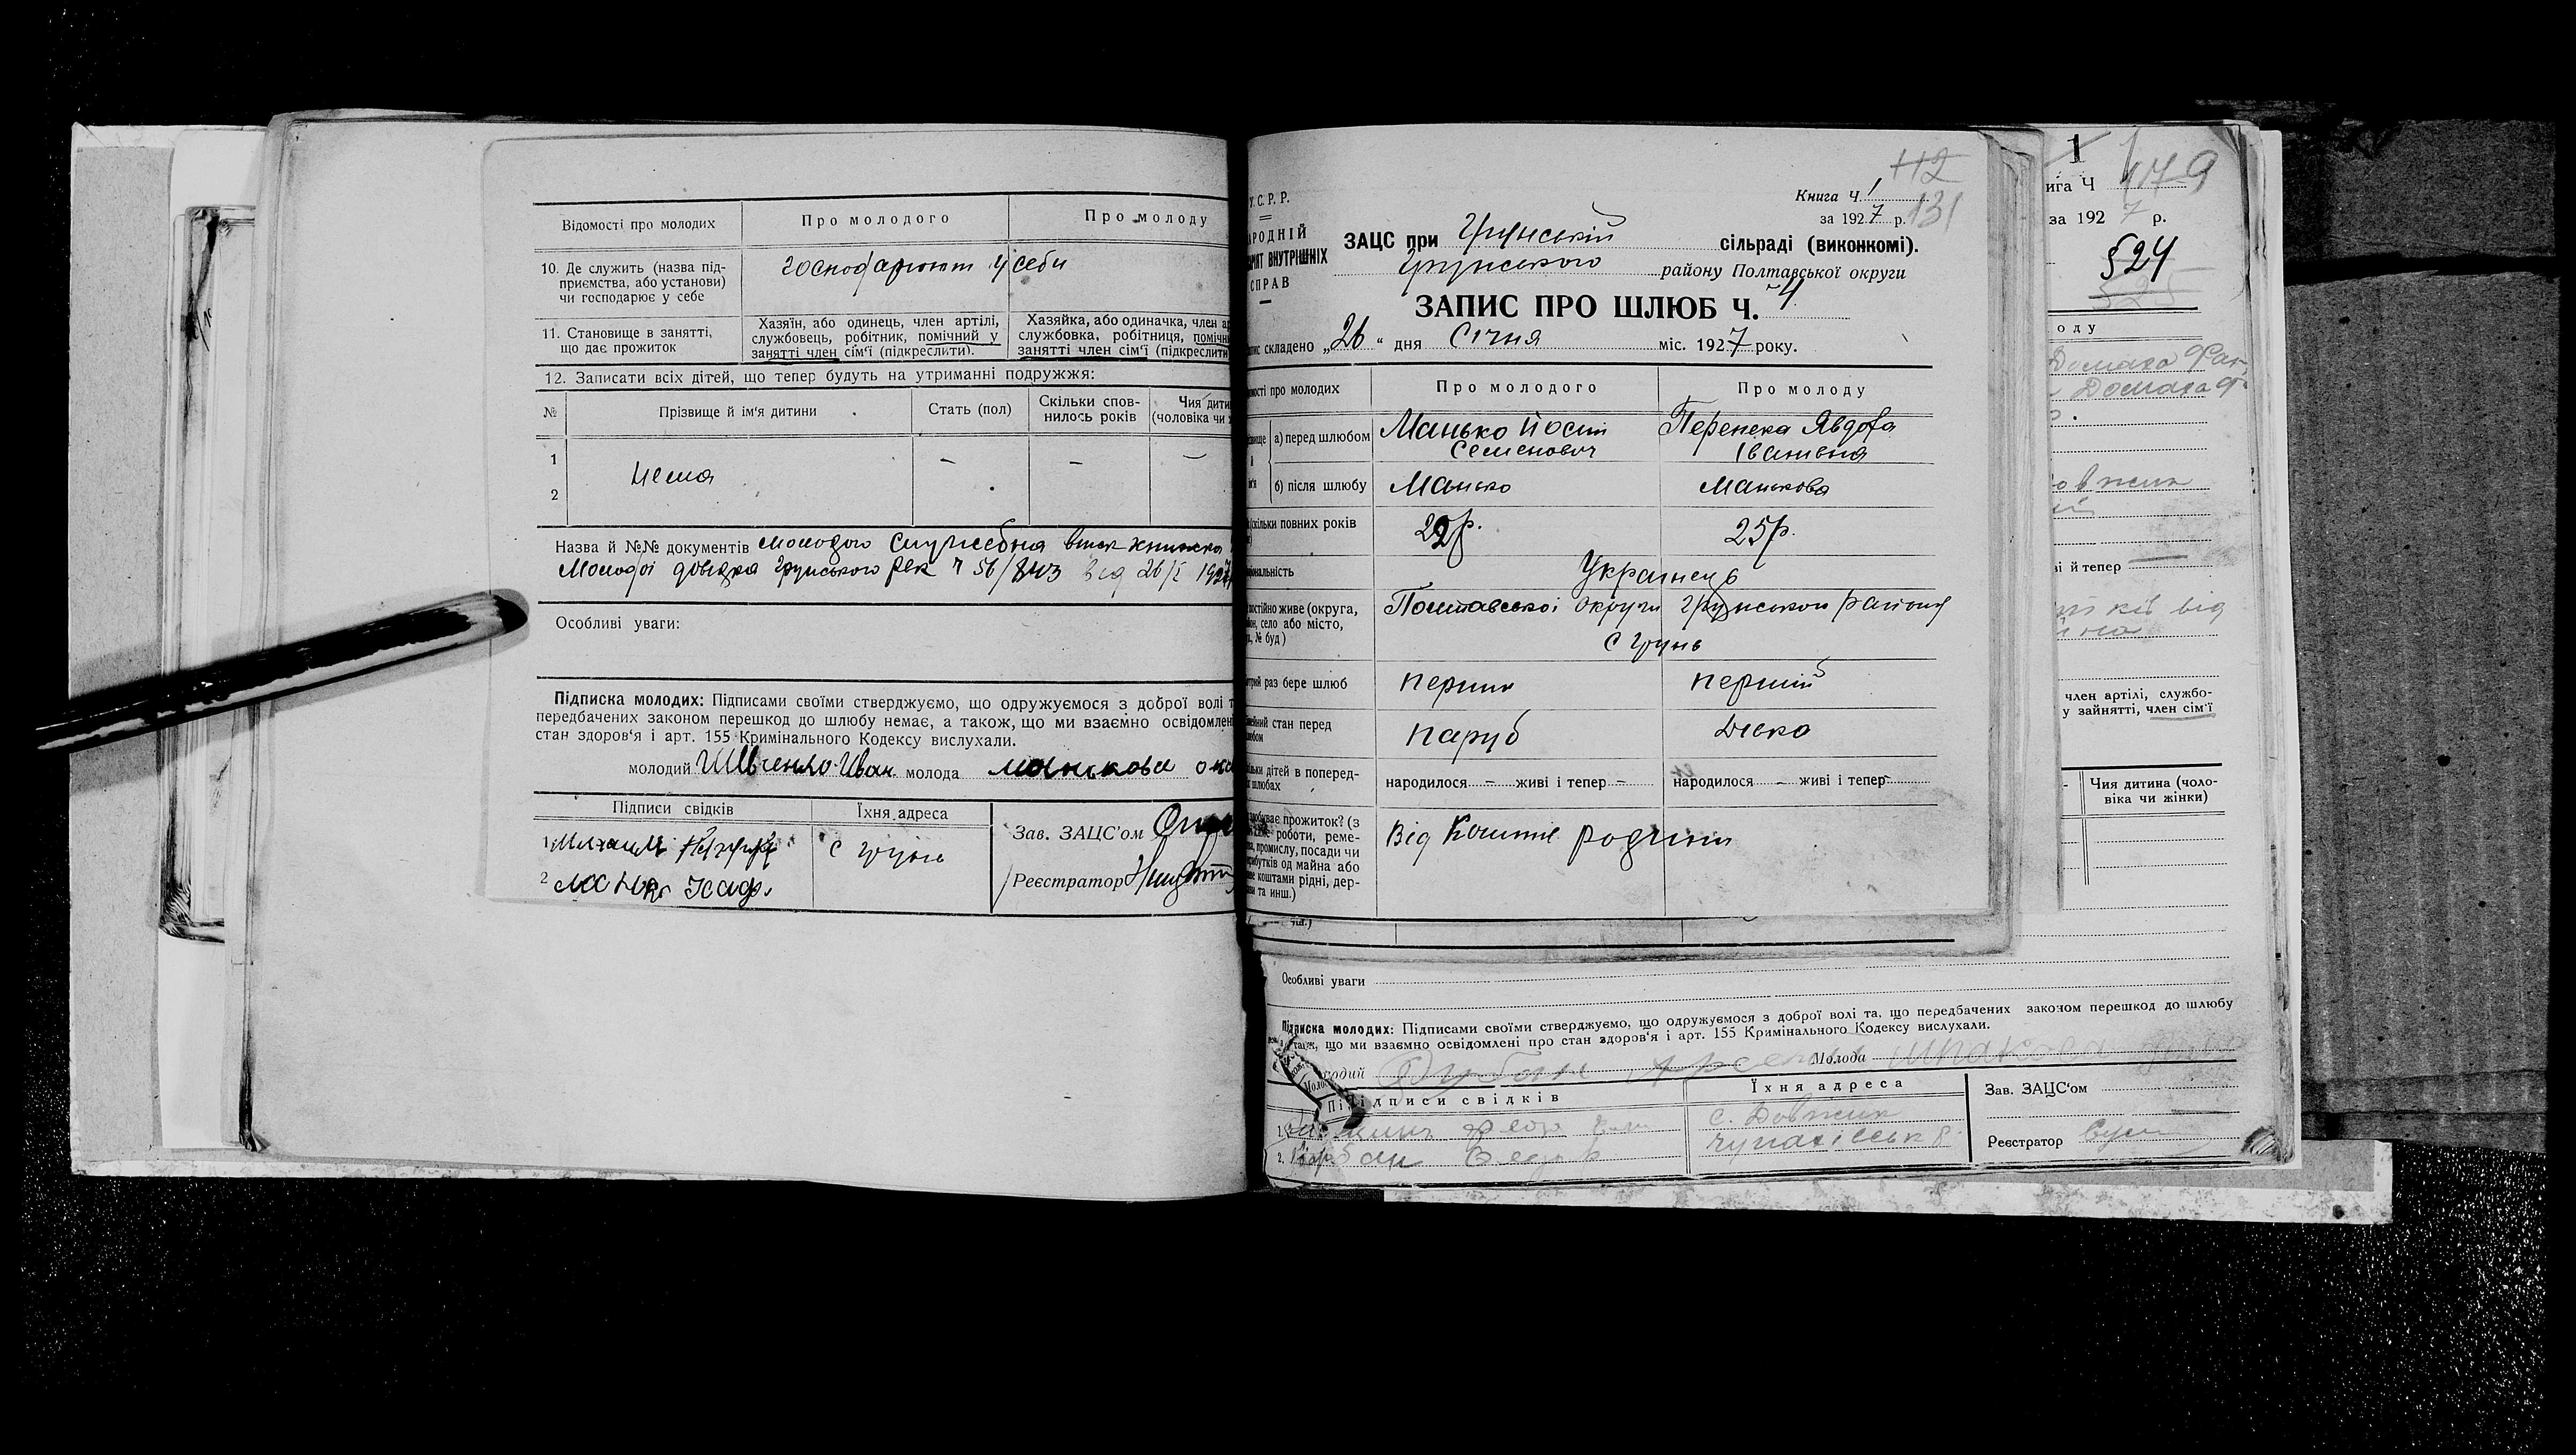 Відомості про молодих
Про молодого
Про молоду
10. Де служить (назва під-
приємства, або установи)
чи господарює у себе
господарюют у себи
11. Становище в занятті,
що дає прожиток
Хазяїн, або одинець, член артілі,
службовець, робітник, помічний у
занятті член сім'ї (підкреслити).
Хазяйка, або одиначка, член
службовка, робітниця,
занятті член сім'ї (підкреслити
12. Записати всіх дітей, що тепер будуть на утриманні подружжя:
№
Прізвище й ім'я дитини
Стать (пол)
Скільки спов-
нилось років
Чия
(чоловіка чи
1
2
нема
— — —
Назва й №№ документів молодого служебна книжка
Молодоі довідка Грунського рвк ч 56/843 від 26/I 1927
Особливі уваги:
Підписка молодих: Підписами своїми стверджуємо, що одружуємося з доброї волі
передбачених законом перешкод до шлюбу немає, а також, що ми взаємно
стан здоров'я і арт. 155 Кримінального Кодексу вислухали.
молодий Иван молода манькова
Підписи свідків
Їхня адреса
Зав. ЗАЦС'ом
1
с грунь
2
Реєстратор
У.С.Р.Р.
ВНУТРІШНІХ
СПРАВ
112
131
Книга Ч. 1
за 1927 р.
ЗАЦС при Грунській сільраді (виконкомі).
Грунського району Полтавської округи
ЗАПИС ПРО ШЛЮБ Ч. 4
складено „26“ дня Січня міс. 1927 року.
про молодих
Про молодого
Про молоду
а) перед шлюбом
Манько Йосип
Семенович
Перепека Явдоха
Іванівна
б) після шлюбу
Манько
Манькова
скільки повних років
22р.
25р.
Украінець
постійно живе (округа,
село або місто,
№ буд)
Полтавськоі округи Грунського району
с грунь
раз бере шлюб
перший
перший
стан перед
паруб
дівка
дітей в поперед-
шлюбах
народилося – живі і тепер –
народилося – живі і тепер –
прожиток? (з
роботи, реме-
промислу, посади чи
од майна або
коштами рідні, дер-
та инш.)
Від Коштів родини
1
Ч 179
за 1927 р.
§24
й тепер
від
член артілі, службо-
у зайнятті, член сім'ї
Чия дитина (чоло-
віка чи жінки)
Особливі уваги
Підписка молодих: Підписами своїми стверджуємо, що одружуємося з доброї волі та, що передбачених законом перешкод до шлюбу
що ми взаємно освідомлені про стан здоров'я і арт. 155 Кримінального Кодексу вислухали.
Молода
Підписи свідків
Їхня адреса
Зав. ЗАЦС'ом
1.
с. Довжик
2.
Реєстратор